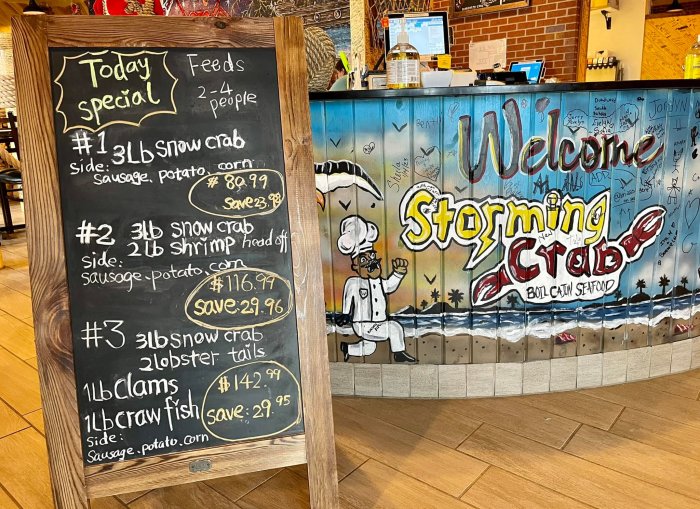 Today
special
Feeds
2-4
people
#1 3Lb snow crab
side:
sausage. potato. corn
$89.99
save:23.98
#2 3lb snow crab
2lb shrimp head off
side:
sausage. potato. corn
$116.99
save:29.96
#3 3lb snow crab
2 lobster tails
1Lb clams
1Lb craw fish
$142.99
save:29.95
side:
sausage. potato. corn
Welcome
Storming
Crab
BOIL CAJUN SEAFOOD